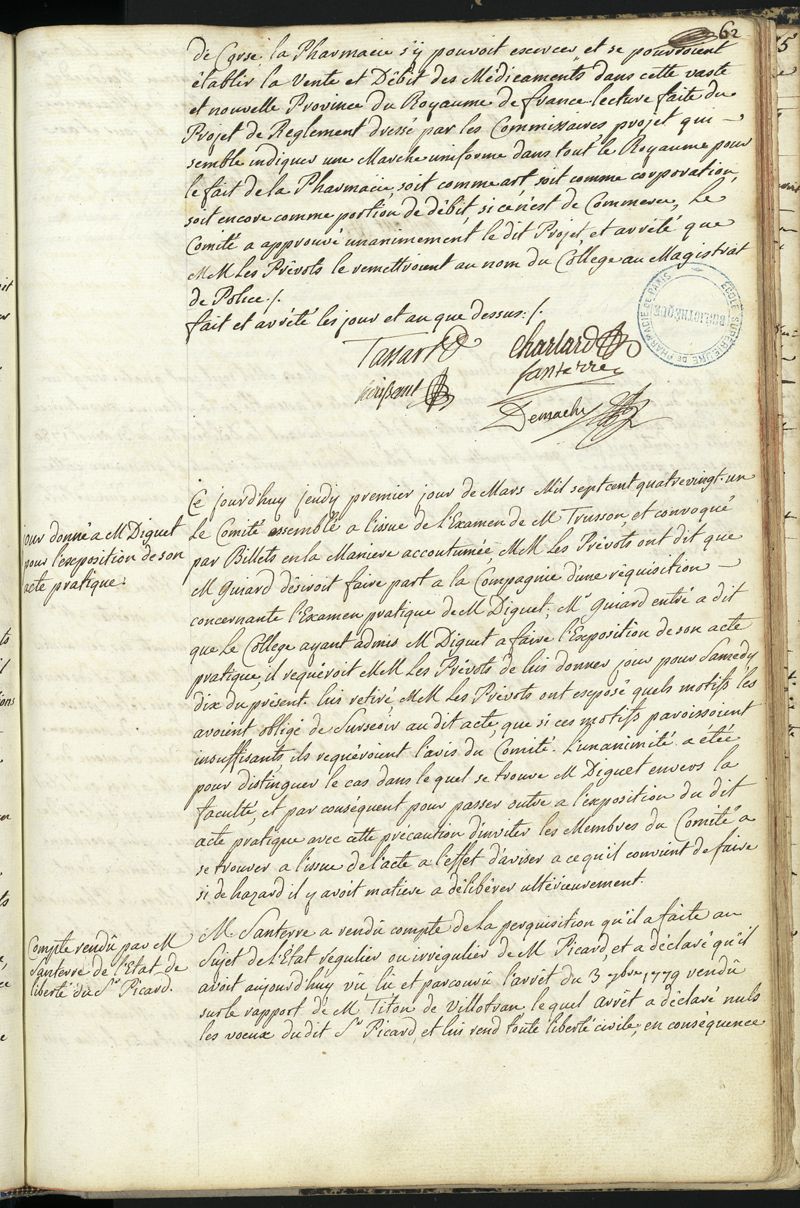 62
de Corse. la Pharmacie s'y pouvoit exercer et se pourroient
établir la Vente et Débit des Médicaments dans cette vaste
et nouvelle Province du Royaume de france. lecture faite du
Projet de Reglement dressé par les Commissaires projet qui
semble indiquer une Marche uniforme dans tout le Royaume pour
le fait de la Pharmacie, soit comme art soit comme corporation,
soit encore comme portion de débit, si ce n'est de Commerce, Le
Comité a approuvé unanimement le dit Projet, et arrêté que
MM Les Prévots le remettroient au nom du College au Magistrat
de Police./.
fait et arrêté les jour et an que dessus:/.
Tassart
Charlard
Santerre
Demachy
ECOLE SUPERIEURE DE PHARMACIE DE PARIS
BIBLIOTHEQUE
Ce jourd'huy jeudy premier jour de Mars Mil sept cent quatrevingt-un
Le Comité assemblé a l'issue de l'Examen de M Trusson, et convoqué
par Billets en la Maniere accoutumée, MM Les Prévots ont dit que
M Guiard désiroit faire part a la Compagnie d'une réquisition
concernante l'Examen pratique de M Diguet; Mr Guiard entré a dit
que Le College ayant admis M Diguet a faire l'Exposition de son acte
pratique, il requéroit MM Les Prévots de lui donner jour pour Samedy
dix du présent. lui retiré, MM Les Prévots ont exposé quels motifs les
avoient obligé de Surseoir au dit acte, que si ces motifs paroissoient
insuffisants, ils requéroient l'avis du Comité. L'unanimité a étée
pour distinguer le cas dans le quel se trouve M Diguet envers la
faculté, et par conséquent pour passer outre a l'exposition du dit
acte pratique avec cette précaution d'inviter les Membres du Comité a
se trouver a l'issue de l'acte a l'effet d'aviser a ce qu'il convient de faire
si de hazard il y avoit matiere a délibérer ultérieurement.
jour donné a M Diguet
pour l'exposition de son
acte pratique.
M Santerre a rendu compte de la perquisition qu'il a faite au
Sujet de l'Etat régulier ou irrégulier de M Picard, et a déclaré qu'il
avoit aujourd'huy vû lû et parcourû l'arrêt du 3 7bre 1779 rendû
sur le rapport de M Titon de Villotran, lequel arrêt a déclaré nuls
les voeux du dit Sr Picard, et lui rend toute liberté civile, en conséquence
Compte rendû par M
Santerre de l'Etat de
liberté du Sr Picard.